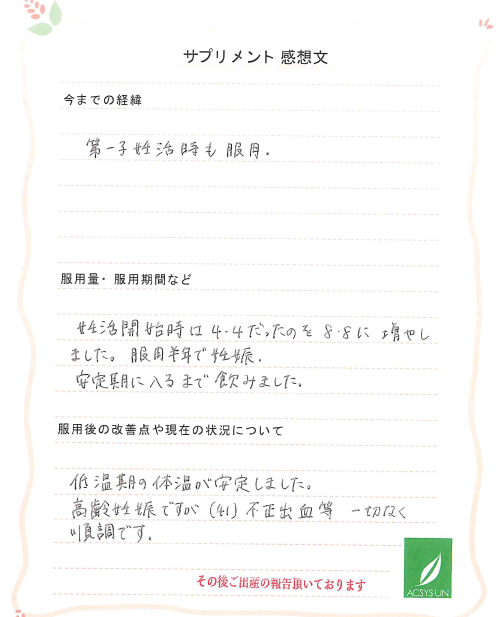 サプリメント 感想文
今までの経緯
第一子妊活時も服用.
服用量・服用期間など
妊活開始時は4・4だったのを8・8に増やし
ました。服用半年で妊娠.
安定期に入るまで飲みました。
服用後の改善点や現在の状況について
低温期の体温が安定しました。
高齢妊娠ですが(41)不正出血等 一切なく
順調です.
その後ご出産の報告頂いております
ACSYSUN